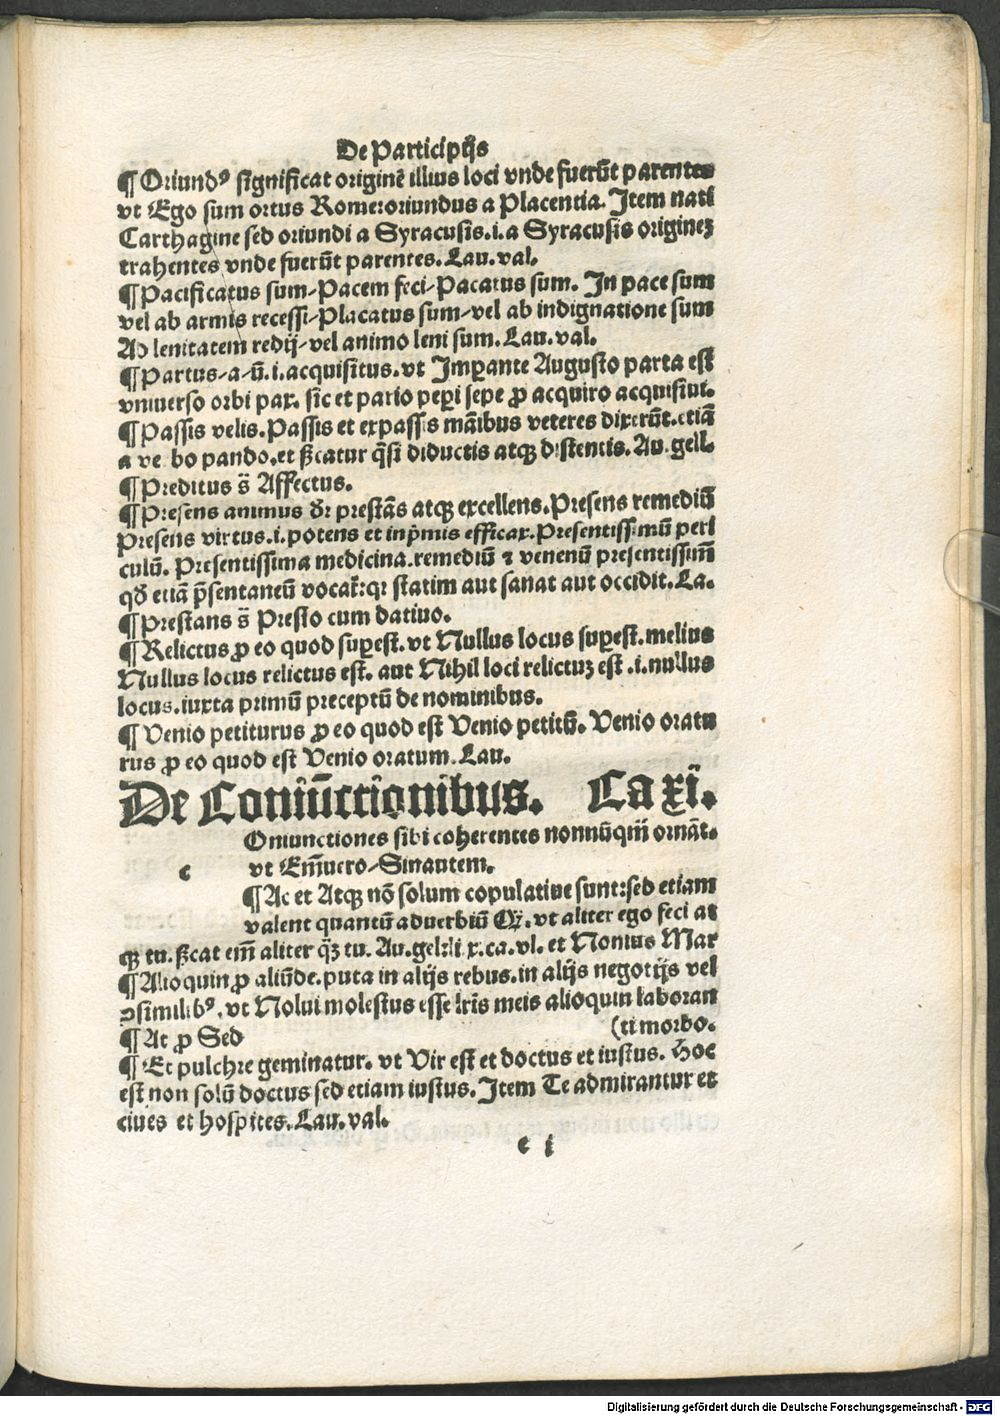 De Participijs
¶ Oriundꝰ significat originē illius loci vnde fuerūt parentes
vt Ego sum ortus Rome:oriundus a Placentia. Item nati
Carthagine sed oriundi a Syracusis.i.a Syracusis origineꝫ
trahentes vnde fuerūt parentes. Lau. val.
¶ Pacificatus sum/Pacem feci/Pacatus sum. In pace sum
vel ab armis recessi/Placatus sum/vel ab indignatione sum
Ad lenitatem redij/vel animo leni sum. Lau. val.
¶ Partus/a/ū.i.acquisitus.vt Imꝑante Augusto parta est
vniuerso orbi pax. sic et pario peꝑi sepe ꝓ acquiro acquisiui.
¶ Passis velis. Passis et expassis māibus veteres dixerūt.etiā
a ve bo pando.et ßcatur q̄si diductis atqꝫ distentis. Au.gell.
¶ Preditus s̄ Affectus.
¶ Presens animus dr̄ prestās atqꝫ excellens. Presens remediū
Presens virtus.i.potens et inp̄mis efficax. Presentissimū peri
culū. Presentissima medicina.remediū ⁊ venenū presentissim̄
qd̄ etiā p̄sentaneū vocat̄:qꝛ statim aut sanat aut occidit. La.
¶ Prestans s̄ Presto cum datiuo.
¶ Relictus ꝓ eo quod suꝑest. vt Nullus locus suꝑest. melius
Nullus locus relictus est. aut Nihil loci relictuꝫ est .i. nullus
locus.iuxta primū preceptū de nominibus.
¶ Venio petiturus ꝓ eo quod est Venio petitū. Venio oratu
rus ꝓ eo quod est Venio oratum. Lau.
De Coniūctionibus. Ca xi.
c Oniunctiones sibi coherentes nonnūqm̄ ornāt.
vt Em̄uero/Sinautem.
¶ Ac et Atqꝫ nō solum copulatiue sunt:sed etiam
valent quantū aduerbiū Qꝫ. vt aliter ego feci at
qꝫ tu. ßcat em̄ aliter q̄ꝫ tu. Au.gel.li x.ca.vl. et Nonius Mar
¶ Alioquin ꝓ aliūde.puta in alijs rebus.in alijs negotijs vel
ꝯsimilibꝰ. vt Nolui molestus esse lr̄is meis alioquin laboran
¶ At ꝓ Sed (ti morbo.
¶ Et pulchre geminatur. vt Vir est et doctus et iustus. Hoc
est non solū doctus sed etiam iustus. Item Te admirantur et
ciues et hospites. Lau. val.
e i
Digitalisierung gefördert durch die Deutsche Forschungsgemeinschaft - DFG